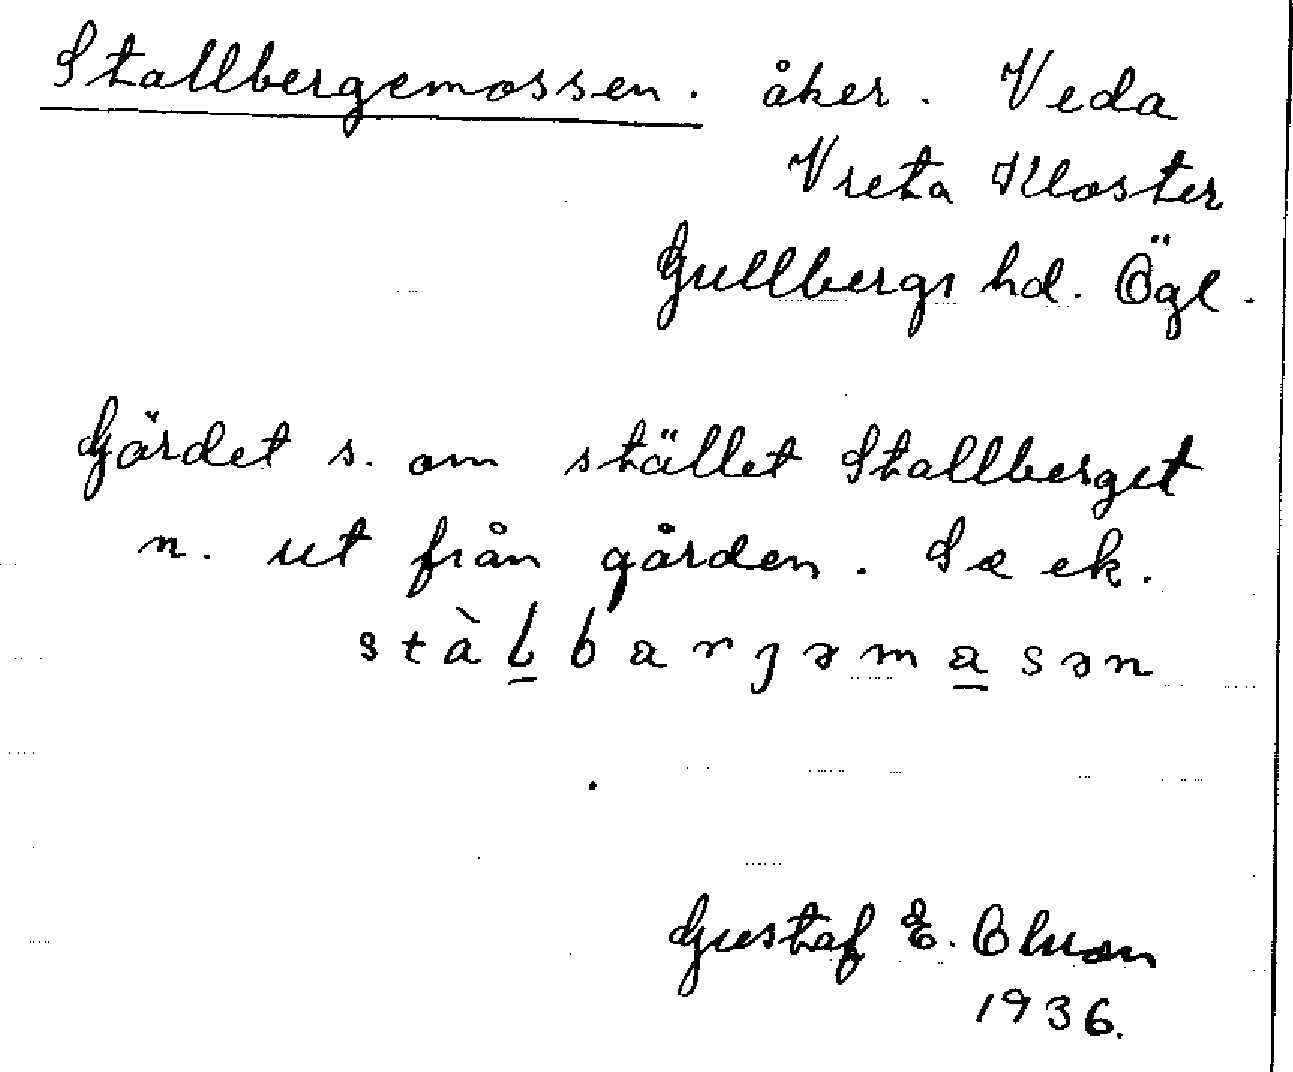 Stallbergemossen. åker. Veda
Vreta Kloster
Gullbergs hd. Ögl.
Gärdet s. om stället Stallberget
n. ut från gården. Se ek.
stàḻbarɟəma̱sən
Gustaf E. Olsson
1936.